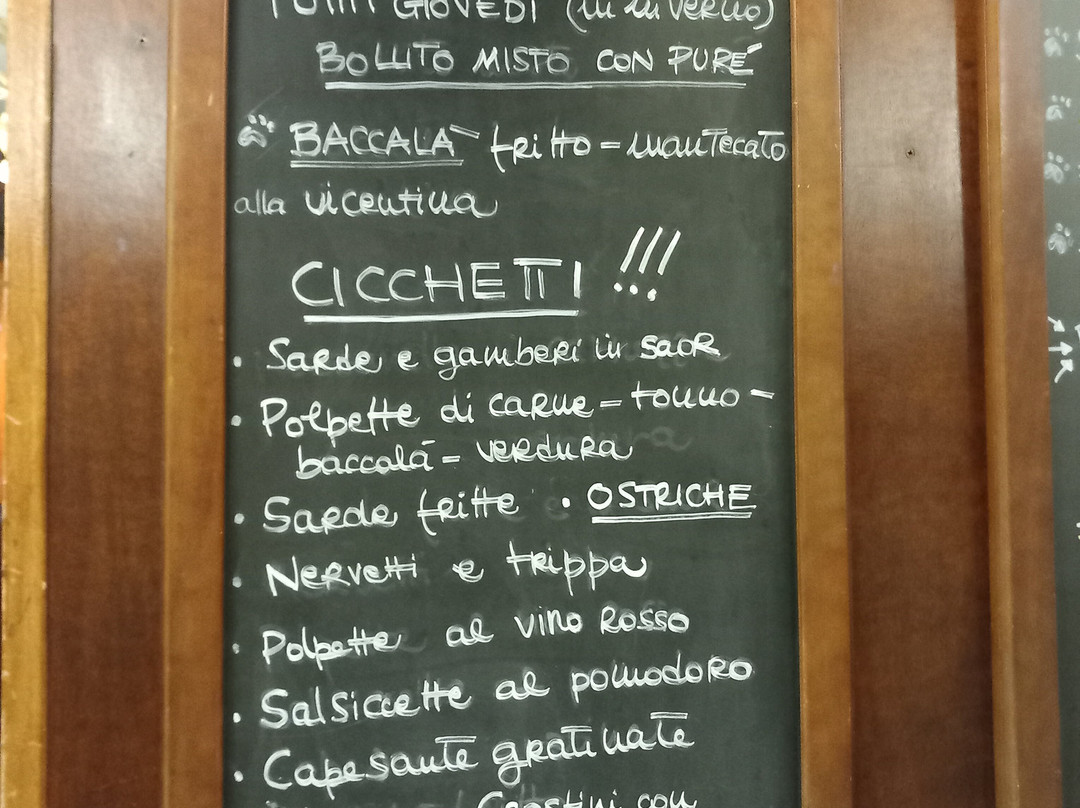 TUTTI GIOVEDÌ (in inverno)
BOLLITO MISTO CON PURÉ
BACCALÀ fritto = mantecato
alla vicentina
CICCHETTI !!!
• Sarde e gamberi in saor
• Polpette di carne = tonno -
baccalà = verdura
• Sarde fritte • OSTRICHE
• Nervetti e trippa
• Polpette al vino rosso
• Salsiccette al pomodoro
• Capesante gratinate
Crostini con